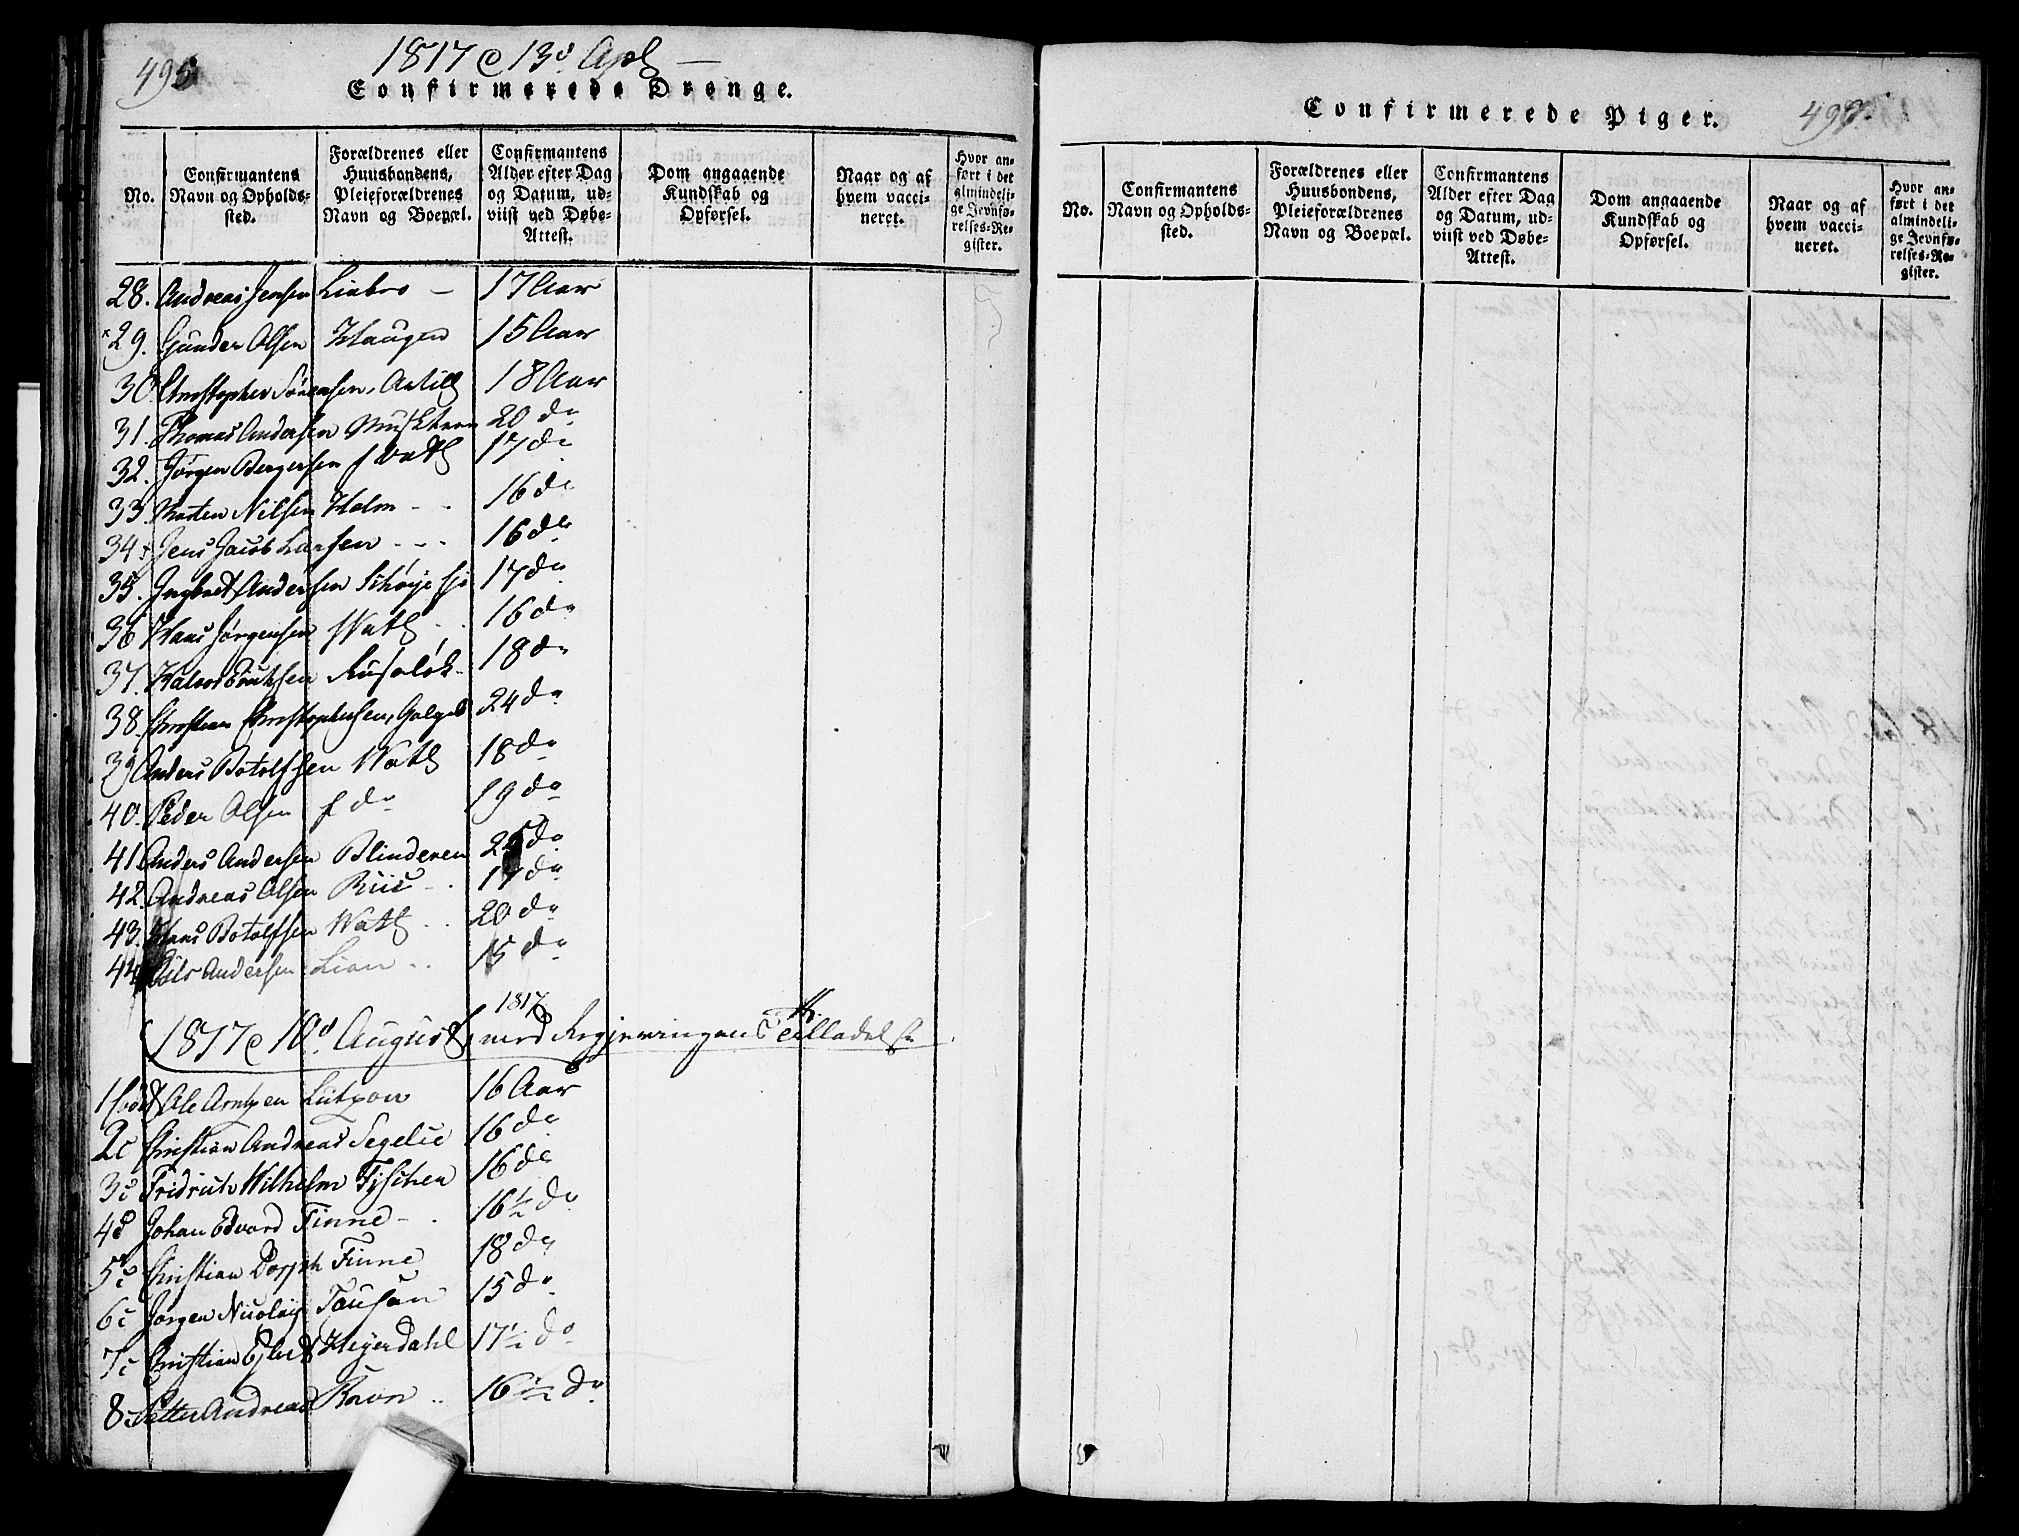 1817 d 13d Apl
496
Confirmerede Drenge.
No.
Confirmantens Navn og Opholds-sted.
Forældrenes eller Huusbondens, Pleieforældrenes Navn og Boepæl.
Confirmantens Alder efter Dag og Datum, ud-viist ved Døbe-Attest.
Dom angaaende Kundskab og Opførsel.
Naar og af hvem vacci-neret.
Hvor an-ført i det almindeli-ge Jevnfø-relses-Re-gister.
28. Andreas Jensen Liabro - 17 Aar
x 29. Gunder Olsen Haugen 15 Aar
30 Christopher Sørensen, 18 Aar
31. Thomas Andersen 20 do
32. Jørgen Bergersen 17 do
33. Morten Nilsen Holm - - 16 do
34 + Jens Jacob Larsen - - - 16 do
35. Ingbret Andersen 17 do
36 Hans Jørgensen 16 do
37. Halvor Erichsen Rusaløk - 18 do
38. Christian Christophersen, 24 do
39 Anders Botolfsen 18 do
40. Peder Olsen f do 19 do
41. Anders Andersen Blinderen 25 do
42. Andreas Olsen Riis - . 17 do
43. Hans Botolfsen 20 do
44. Nils Andersen Lian . . 15 do
1817
1817 d 10d August, med Regjeringens Tilladelse
1 Ole Arntzen Lützow 16 Aar
2 Christian Andreas Segelcke 16 do
3 Fridrich Wilhelm 16 do
4 Johan Edvard Finne - . 16 1/2 do
5 Christian Dorph Finne 18 do
6 Jørgen Nicolay Tausan 15 do
7 Christian Eilert Heyerdahl 17 1/2 do
8 Petter Andreas Ravn . . 16 1/2 do
Confirmerede Piger.
497.
No.
Confirmantens Navn og Opholds-sted.
Forældrenes eller Huusbondens, Pleieforældrenes Navn og Boepæl.
Confirmantens Alder efter Dag og Datum, ud-viist ved Døbe-Attest.
Dom angaaende Kundskab og Opførsel.
Naar og af hvem vacci-neret.
Hvor an-ført i det almindeli-ge Jevnfø-relses-Re-gister.